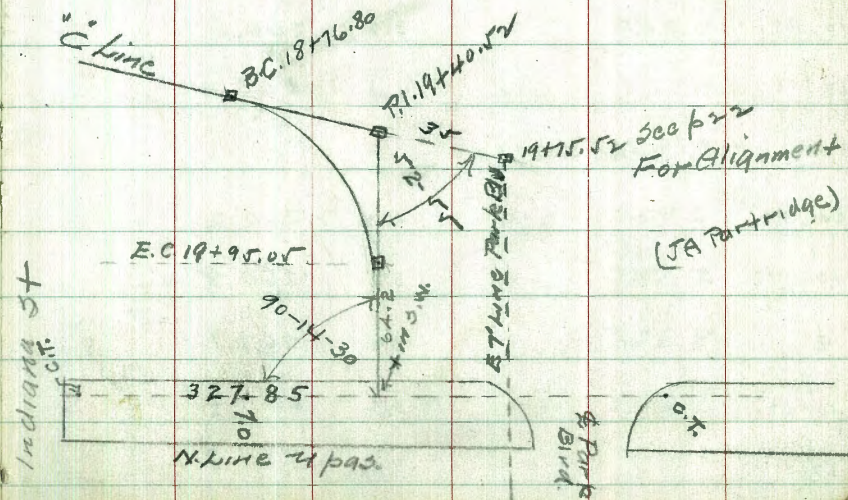 "C" Line
B.C. 18+76.80
P.I. 19+40.52
35
19+75.52 See p 22
For Alignment
(JA Partridge)
25
55
E.C 19+95.05
90-14-30
64.2
in S.W.
Indiana St
C.T.
327.85
10
N. Line Upas.
Park
Blvd.
C.T.